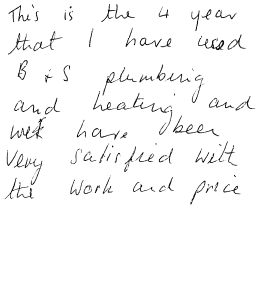 This is the 4 year
that I have used
B & S plumbing
and heating and
have been
very satisfied with
the work and price